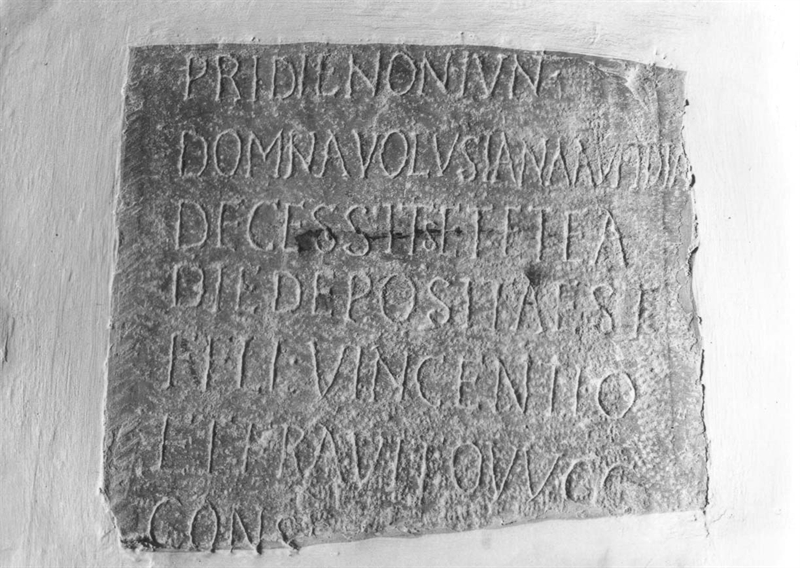 PRIDIE NON IVN
DOMNA VOLVSIANA AVFIDIA
DECESSIT ET ET EA
DIE DEPOSITA EST
FLL VINCENTIO
ET FRAVITO VVCC
CONS